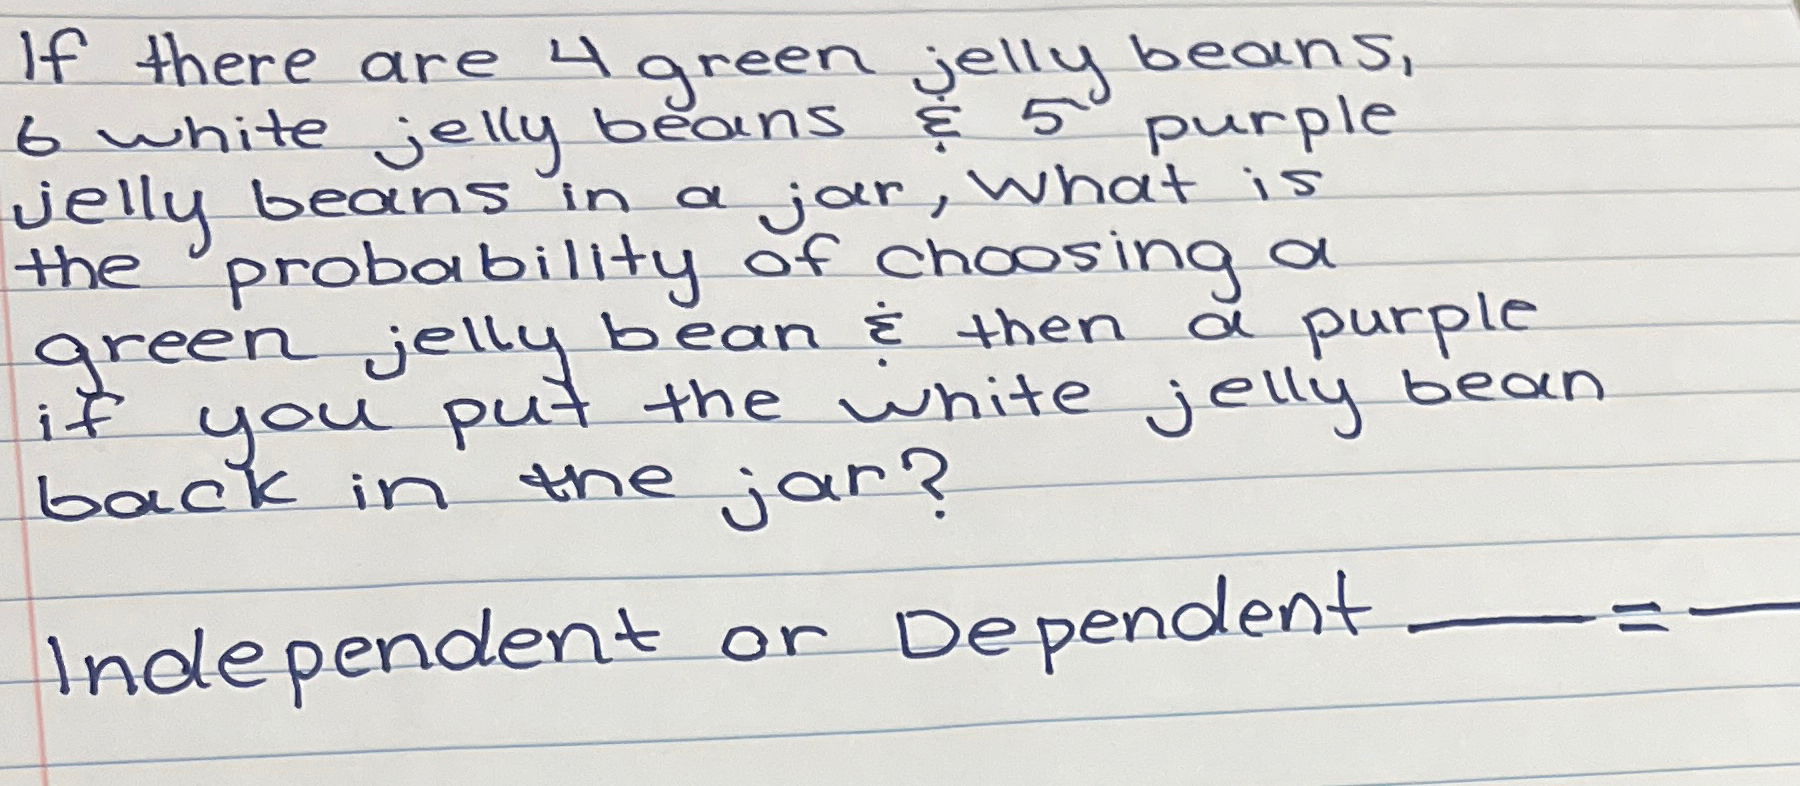 If there are 4 green jelly beans,
6 white jelly beans & 5 purple
jelly beans in a jar, what is
the probability of choosing a
green jelly bean & then a purple
if you put the white jelly bean
back in the jar?
Independent or Dependent ___ = ___